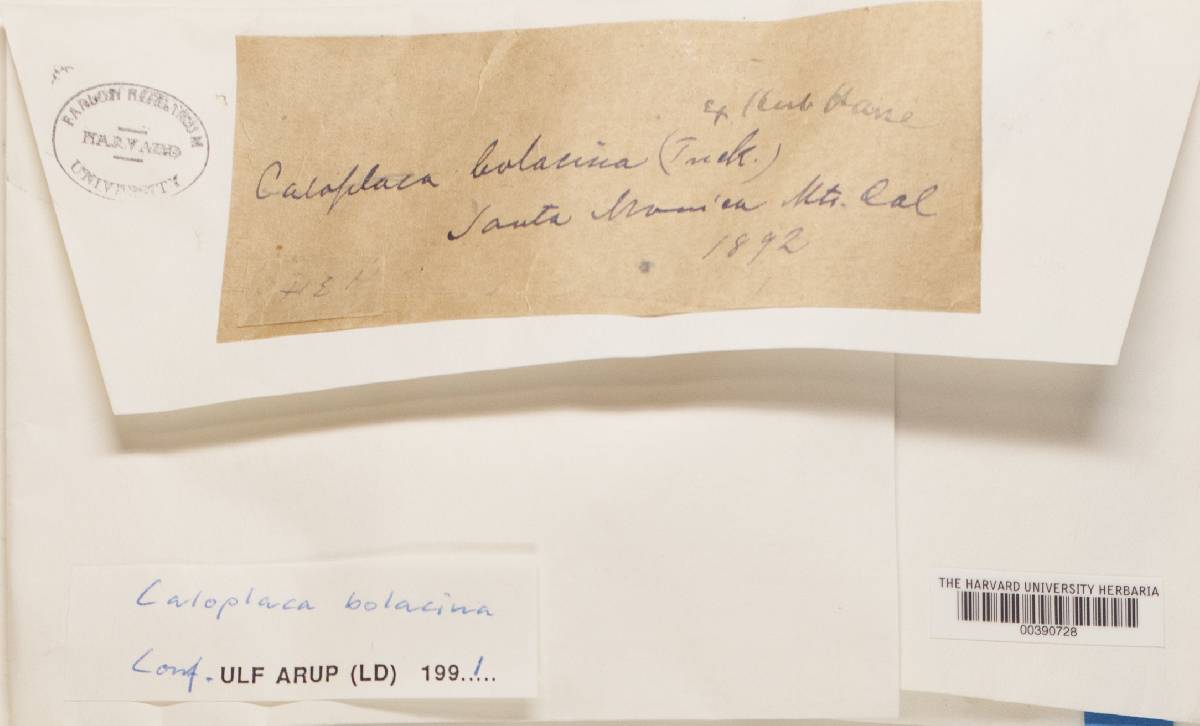 FARLOW HERBARIUM
HARVARD
UNIVERSITY
ex Herb Hasse
Caloplaca bolacina (Tuck.)
Santa Monica Mts. Cal
1892
Caloplaca bolacina
Conf. ULF ARUP (LD) 199.1...
THE HARVARD UNIVERSITY HERBARIA
00390728